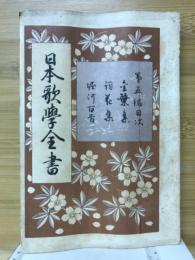 日本歌學全書
第五編目次
金葉集
詞花集
堀河百首